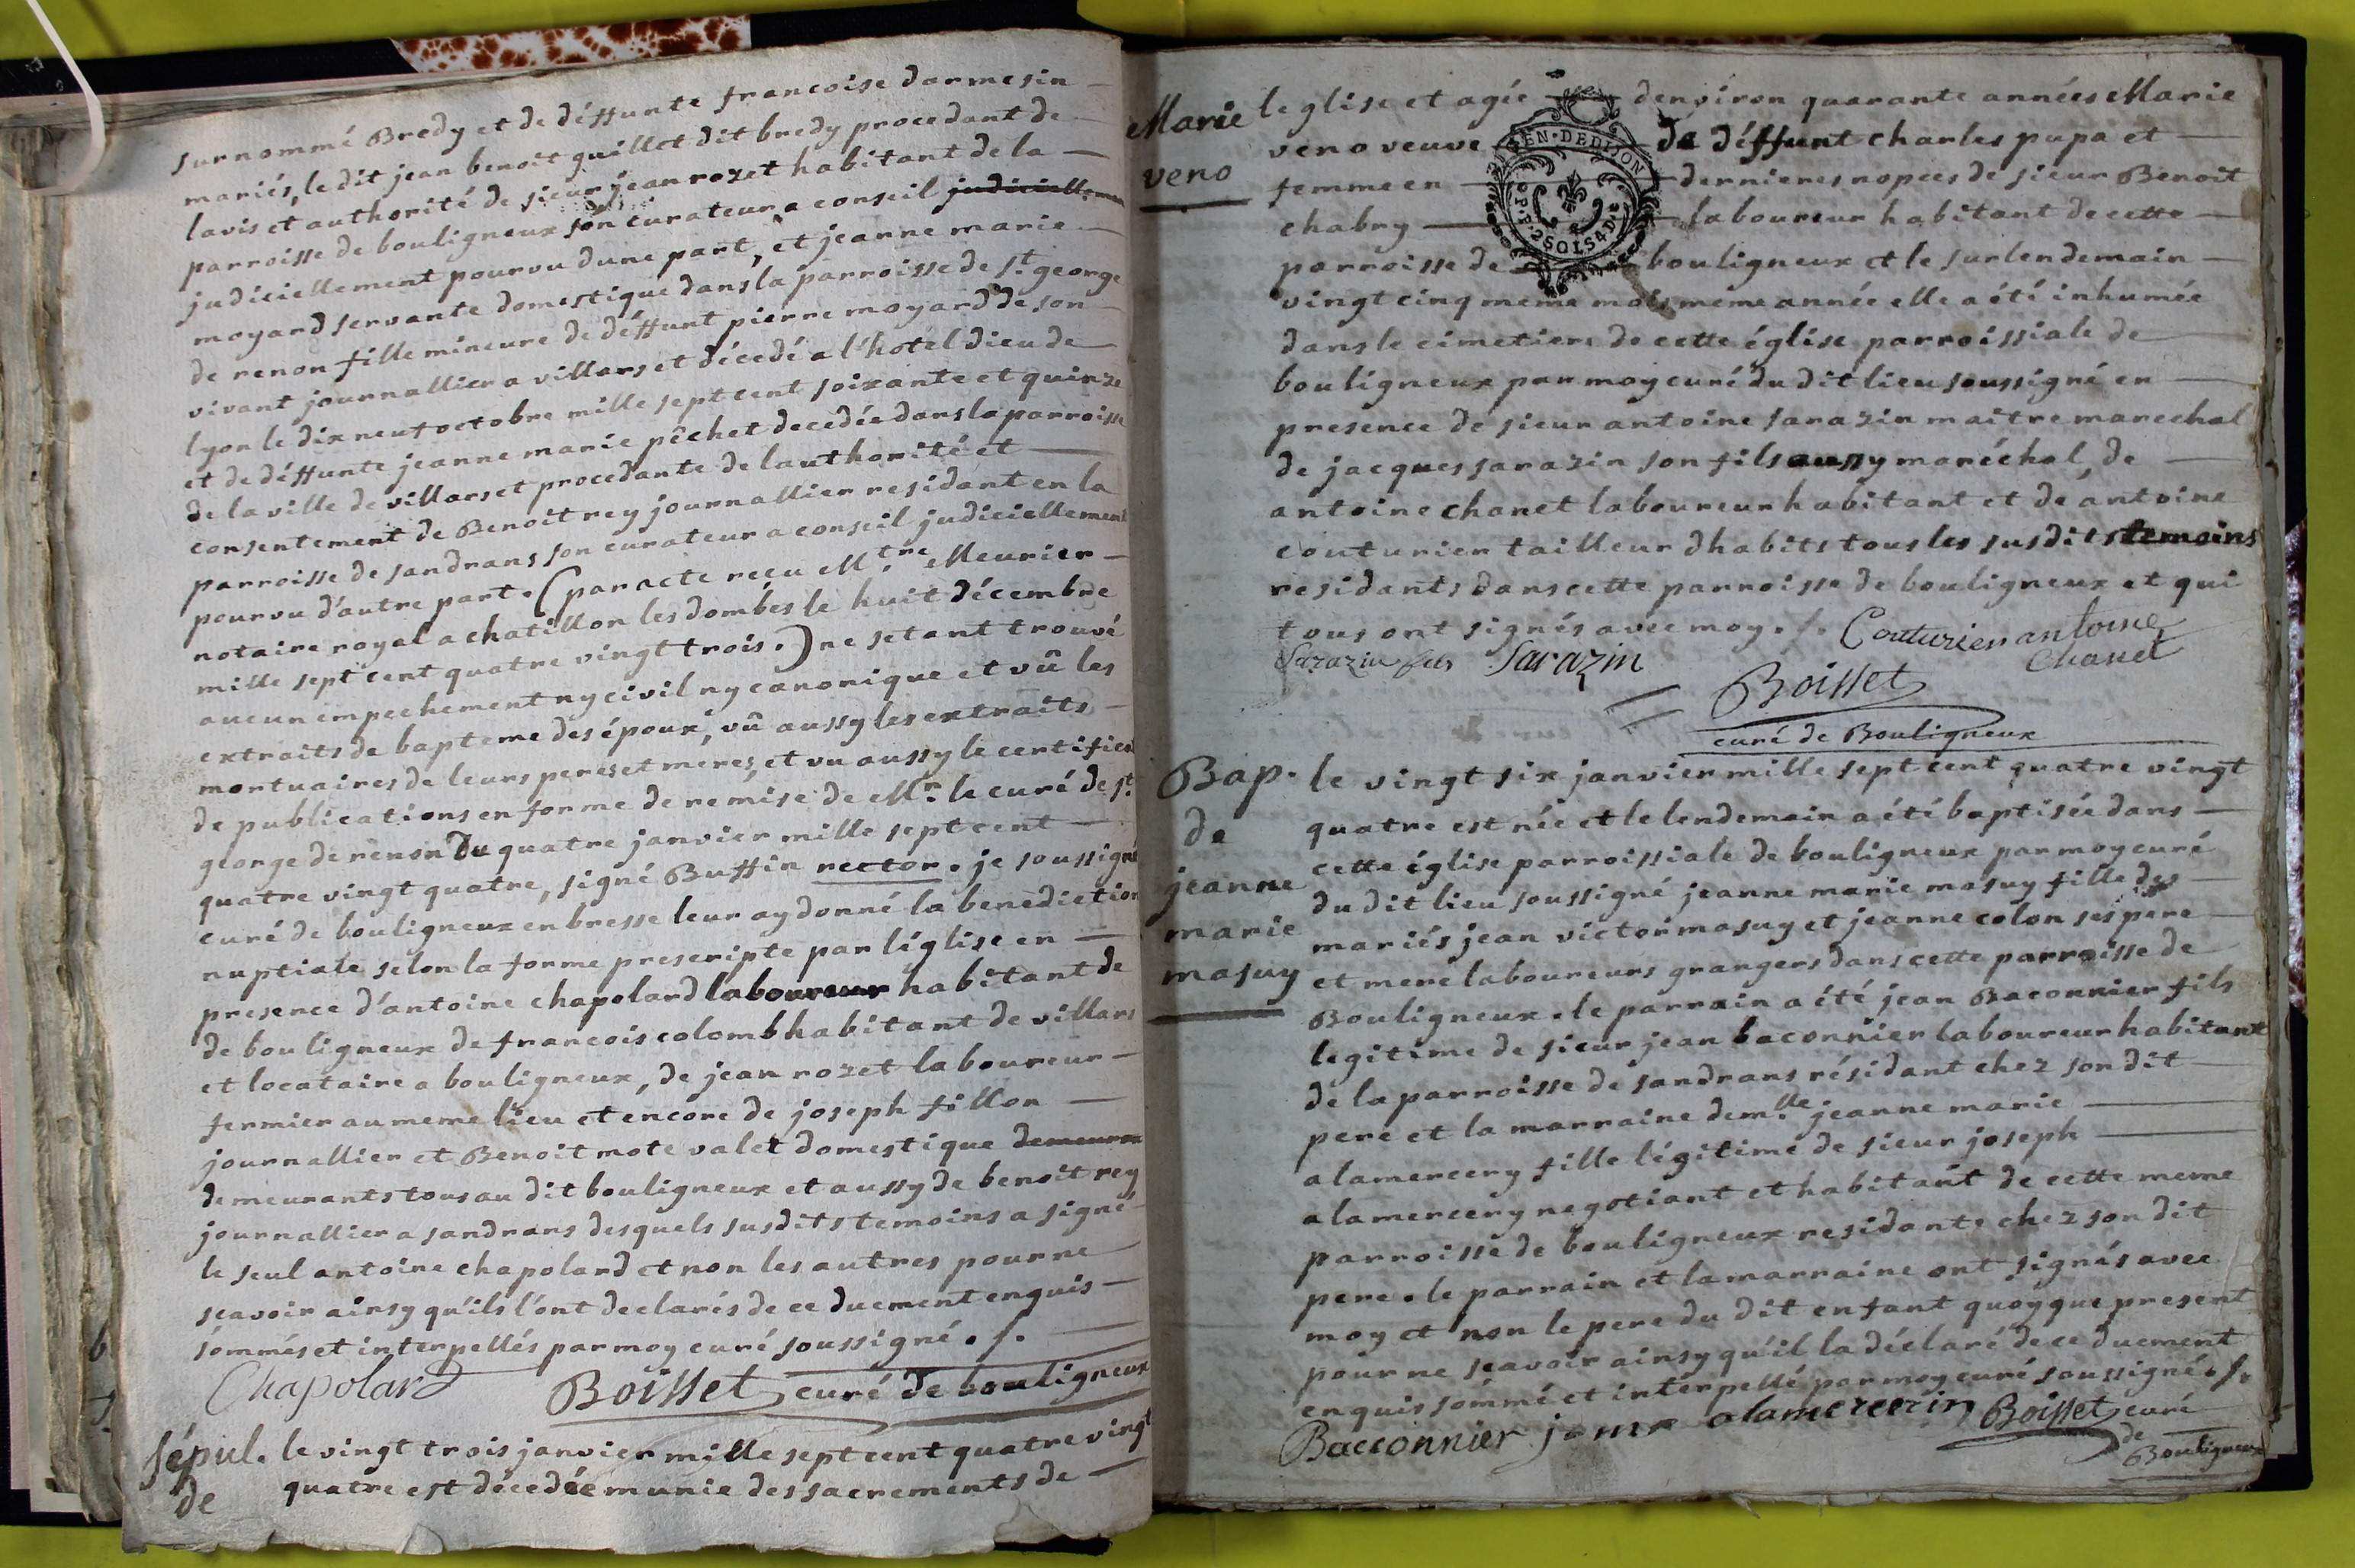 surnommé Bredy et de déffunte francoise darmesin
mariés, le dit jean benoit quillet dit bredy procedant de
lavis et authorité de sieur jean rozet habitant de la
parroisse de bouligneux son curateur a conseil judiciellemen
judiciellement pourvu dune part, et jeanne marie
moyard servante domestique dans la parroisse de st george
de renon fille mineure de déffunt pierre moyard de son
vivant journallier a villars et décedé a l'hotel dieu de
lyon le dix neuf octobre mille sept cent soixante et quinze
et de déffunte jeanne marie pêchet decedée dans la parroisse
de la ville de villars et procedante de lauthorité et
consentement de Benoit rey journallier residant en la
parroisse de sandrans son curateur a conseil judiciellement
pourvu d'autre part. (par acte recu M.tre Meurier
notaire royal a chatillon les dombes le huit décembre
mille sept cent quatre vingt trois.) ne setant trouvé
aucun empechement ny civil ny canonique et vû les
extraits de bapteme des époux, vû aussy les extraits
mortuaires de leurs peres et meres, et vu aussy le certificat
de publications en forme de remise de Mr. le curé de st.
george de renon du quatre janvier mille sept cent
quatre vingt quatre, signé Buffin rector. je soussigné
curé de bouligneux en bresse leur ay donné la benediction
nuptiale selon la forme prescripte par léglise en
presence d'antoine chapolard laboureur habitant de
de bouligneux de francois colomb habitant de villars
et locataire a bouligneux, de jean rozet laboureur
fermier au meme lieu et encore de joseph fillon
journallier et Benoit mote valet domestique demeuran
demeurants tous au dit bouligneux et aussy de benoit rey
journallier a sandrans desquels susdits temoins a signé
le seul antoine chapolard et non les autres pour ne
scavoir ainsy qu'ils l'ont declarés de ce duement enquis
sommés et interpellés par moy curé soussigné. f.
Chapolard Boisset curé de bouligneux
sépul. le vingt trois janvier mille sept cent quatre vingt
de quatre est décedée munie des sacrements de
Marie leglise et agée denviron quarante années Marie
veno veno veuve de déffunt charles pupa et
femme en dernieres nopces de sieur Benoit
chabry laboureur habitant de cette
parroisse de bouligneux et le surlendemain
GEN·DEDIJON
2SOLS4D
vingt cinq meme mois meme année elle a été inhumée
dans le cimetiere de cette église parroissiale de
bouligneux par moy curé du dit lieu soussigné en
presence de sieur antoine sarazin maître marechal
de jacques sarazin son fils aussy maréchal, de
antoine chanet laboureur habitant et de antoine
couturier tailleur dhabits tous les susdits temoins
residants dans cette parroisse de bouligneux et qui
tous ont signés avec moy. f. Couturier antoine
Sarazin fils Sarazin Chanet
Boisset
curé de Bouligneux
Bap. le vingt six janvier mille sept cent quatre vingt
de quatre est née et le lendemain a été baptisée dans
cette église parroissiale de bouligneux par moy curé
jeanne du dit lieu soussigné jeanne marie masuy fille des
marie mariés jean victor masuy et jeanne colon ses pere
masuy et mere laboureurs grangers dans cette parroisse de
Bouligneux. le parrain a été jean Baconnier fils
legitime de sieur jean baconnier laboureur habitant
de la parroisse de sandrans résidant chez son dit
pere et la marraine dem.lle jeanne marie
alamercery fille légitime de sieur joseph
alamercery negotiant et habitant de cette meme
parroisse de bouligneux residante chez son dit
pere. le parrain et la marraine ont signés avec
moy et non le pere du dit enfant quoyque present
pour ne scavoir ainsy qu'il la déclaré de ce duement
enquis sommé et interpellé par moy curé soussigné. f.
Bacconnier alamercerin Boisset curé
de
Bouligneux